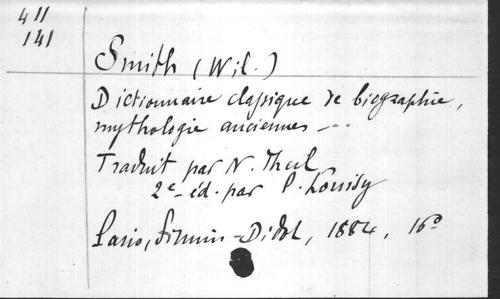 411
141
Smith (Wil.)
Dictionnaire classique de biographie,
mythologie anciennes - ...
Traduit par N. Theil
2e éd. par P. Louisy
Paris, Firmin-Didot, 1884, 16o